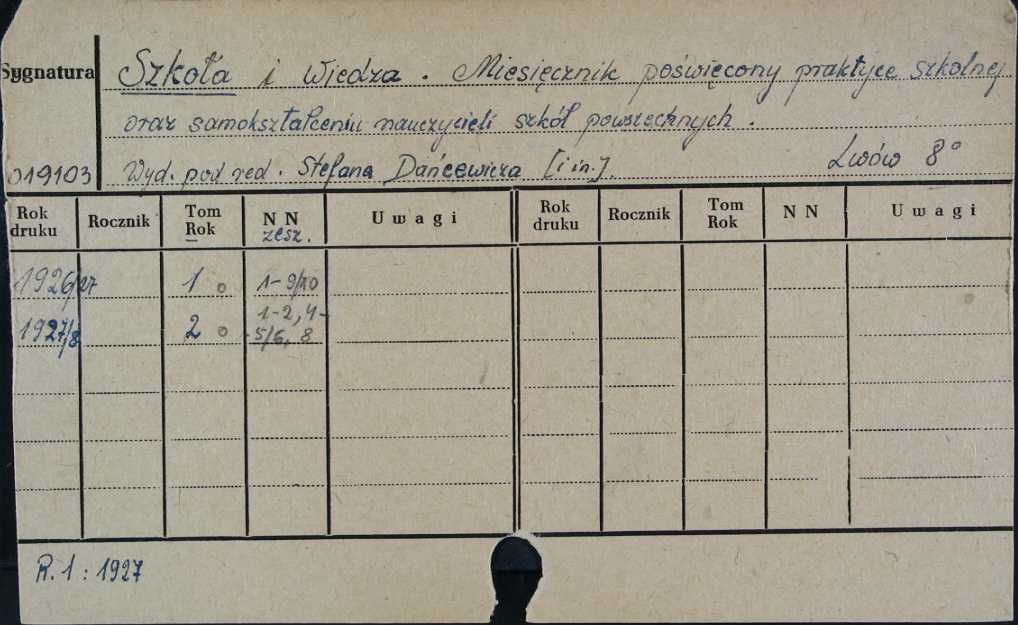 Sygnatura Szkoła i Wiedza. Miesięcznik poświęcony praktyce szkolnej
oraz samokształceniu nauczycieli szkół powszechnych.
019103 Wyd. pod red. Stefana Dańcewicza [i in.]. Lwów 8°
Rok druku Rocznik Tom Rok NN zesz. Uwagi Rok druku Rocznik Tom Rok NN Uwagi
1926/27 1 o 1-9/10
1927/8 2 o 1-2, 4-
-5/6, 8
R. 1 : 1927